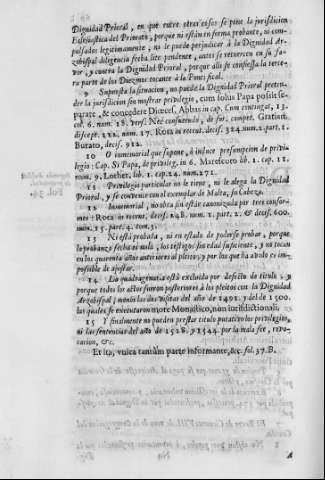 Dignidad Prioral, en que entre otras cosas se pide la jurisdicion
Eclesiastica del Priorato, porque ni están en forma probante, ni com-
pulsados legitimamente, ni le puede perjudicar à la Dignidad Ar-
zobispal diligencia hecha lite pendente, antes se retuercen en su fa-
vor, y contra la Dignidad Prioral, porque alli se confiessa la terce-
ra parte de los Diezmos tocante à la Pontifical.
9 Supuesta la situacion, no puede la Dignidad Prioral preten-
der la jurisdicion sin mostrar privilegio, cum solus Papa possit se-
parare, & concedere Diœces. Abbas in cap. Cum contingat, 13.
col. 6. num. 28. vers. Nec consuetudo, de for. compet. Gratian.
discept. 222. num. 27. Rota in recent. decis. 324. num. 2. part. 1.
Burato, decis. 912.
10 O inmemorial que supone, ò induce presumpcion de privile-
gio: Cap. Si Papa, de privileg. in 6. Marescoto lib. 1. cap. 12.
num. 9. Lother. lib. 1. cap. 24. num. 271.
11 Privilegio particular no le tiene, ni le alega la Dignidad
Prioral, y se convence con el exemplar de Malta, su Cabeza.
12 Inmemorial, no obsta sin estár canonizada por tres confor-
mes: Rota in recent. decis. 248. num. 1. part. 2. & decis. 600.
num. 15. part. 4. tom. 3.
13 Ni está probada, ni en estado de poderse probar, porque
la probança hecha es nula, los testigos sin edad suficiente, y no tocan
en los quarenta años anteriores al pleito; y por los que ha avido es im-
possible de ajustar.
14 La quadragenaria está excluida por defecto de titulo, y
porque todos los actos fueron posteriores à los pleitos con la Dignidad
Arzobispal; menos las dos visitas del año de 1491. y del de 1500.
las quales se executaron more Monastico, non jurisdictionali.
15 Y finalmente no pueden prestar titulo putativo los privilegios,
ni las sentencias del año de 1528. y 1544. por la mala fee, revo-
cation, &c.
Et ita, unica tantùm parte informante, &c. fol. 37. B.